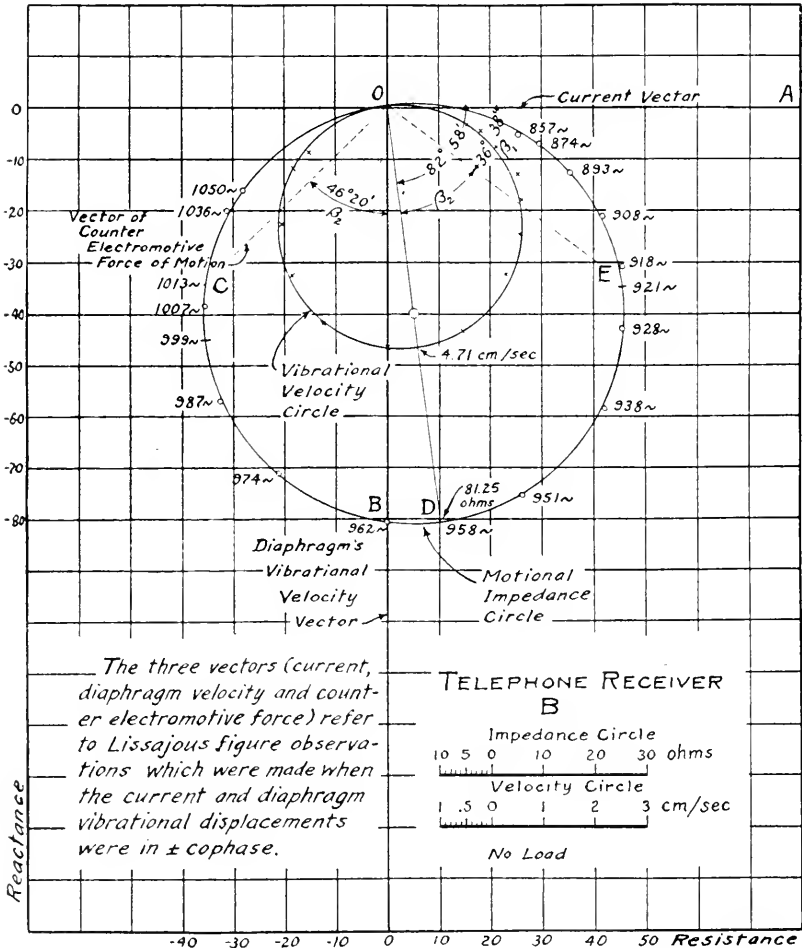 O
A
Current Vector
0
-10
-20
-30
-40
-50
-60
-70
-80
857~
874~
893~
908~
918~
E
921~
928~
938~
951~
958~
962~
974~
987~
999~
1007~
1013~
C
1036~
1050~
82° 58'
36° 38'
β₁
β₂
46°20'
β₂
Vector of
Counter
Electromotive
Force of Motion
4.71 cm/sec
Vibrational
Velocity
Circle
B
D
81.25
ohms
Diaphragm's
Vibrational
Velocity
Vector
Motional
Impedance
Circle
The three vectors (current,
diaphragm velocity and count-
er electromotive force) refer
to Lissajous figure observa-
tions which were made when
the current and diaphragm
vibrational displacements
were in ± cophase.
TELEPHONE RECEIVER
B
Impedance Circle
10 5 0 10 20 30 ohms
Velocity Circle
1 .5 0 1 2 3 cm/sec
No Load
Reactance
-40 -30 -20 -10 0 10 20 30 40 50 Resistance